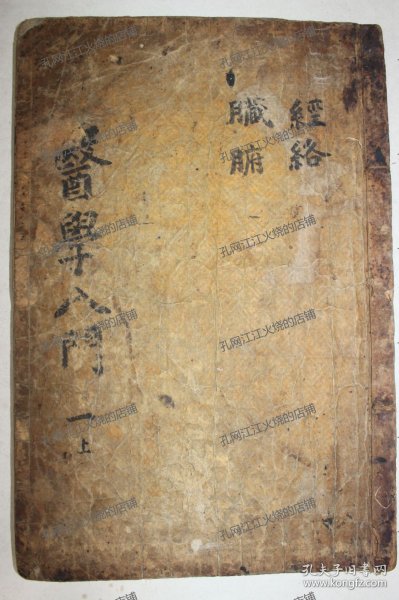 經絡
臟腑
醫學入門 一上
孔网江江火烧的店铺
孔网江江火烧的店铺
孔网江江火烧的店铺
孔网江江火烧的店铺
孔网江江火烧的店铺
孔网江江火烧的店铺
孔网江江火烧的店铺
孔网江江火烧的店铺
孔网江江火烧的店铺
孔夫子旧书网
www.kongfz.com